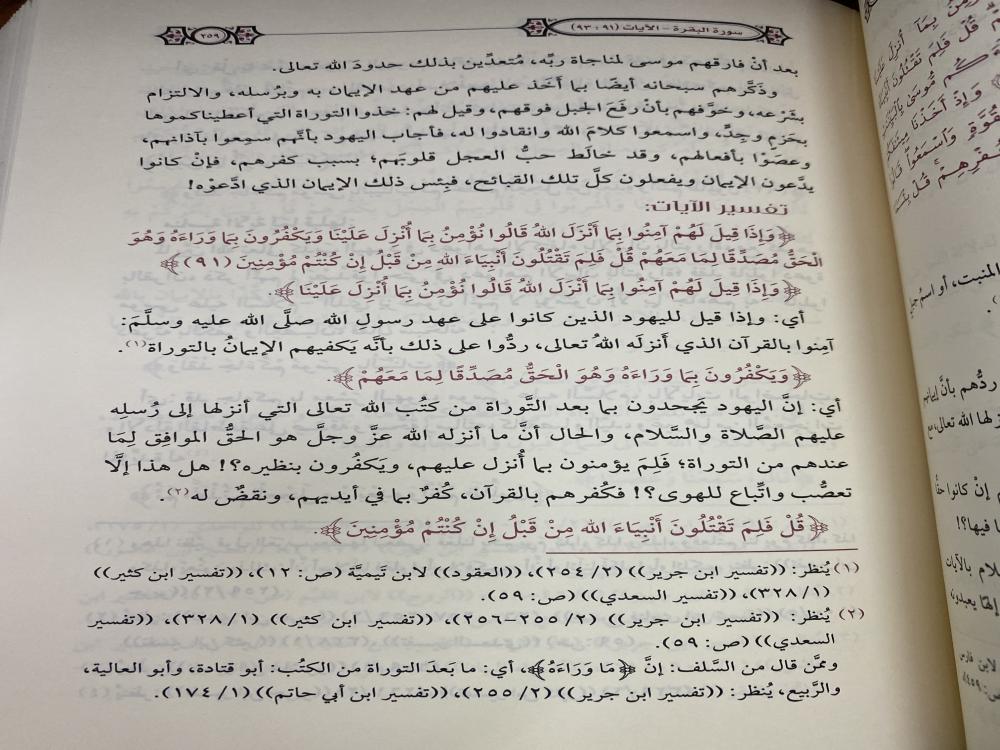 سورة البقرة - الآيات (٩١ : ٩٣)
٢٥٩
بعد أنْ فارقهم موسى لمناجاة ربِّه، مُتعدِّين بذلك حدودَ الله تعالى.
وذكَّرهم سبحانه أيضًا بما أخَذ عليهم من عهد الإيمان به وبرُسله، والالتزام
بشَرْعه، وخوَّفهم بأنْ رفَعَ الجبل فوقهم، وقيل لهم: خذوا التوراة التي أعطيناكموها
بحَزمٍ وجِدٍّ، واسمعوا كلامَ الله وانقادوا له، فأجاب اليهود بأنَّهم سمِعوا بآذانهم،
وعصَوْا بأفعالهم، وقد خالَط حبُّ العجل قلوبَهم؛ بسبب كفرهم، فإنْ كانوا
يدَّعون الإيمان ويفعلون كلَّ تلك القبائح، فبِئس ذلك الإيمان الذي ادَّعوْه!
تفسير الآيات:
﴿وَإِذَا قِيلَ لَهُمْ آمِنُوا بِمَا أَنْزَلَ اللهُ قَالُوا نُؤْمِنُ بِمَا أُنْزِلَ عَلَيْنَا وَيَكْفُرُونَ بِمَا وَرَاءَهُ وَهُوَ
الْحَقُّ مُصَدِّقًا لِمَا مَعَهُمْ قُلْ فَلِمَ تَقْتُلُونَ أَنْبِيَاءَ اللهِ مِنْ قَبْلُ إِنْ كُنْتُمْ مُؤْمِنِينَ (٩١)﴾
﴿وَإِذَا قِيلَ لَهُمْ آمِنُوا بِمَا أَنْزَلَ اللهُ قَالُوا نُؤْمِنُ بِمَا أُنْزِلَ عَلَيْنَا﴾.
أي: وإذا قيل لليهود الذين كانوا على عهد رسولِ الله صلَّى الله عليه وسلَّمَ:
آمِنوا بالقرآن الذي أَنزلَه اللهُ تعالى، ردُّوا على ذلك بأنَّه يَكفيهم الإيمانُ بالتوراة(١).
﴿وَيَكْفُرُونَ بِمَا وَرَاءَهُ وَهُوَ الْحَقُّ مُصَدِّقًا لِمَا مَعَهُمْ﴾.
أي: إنَّ اليهود يَجحدون بما بعد التَّوراة من كتُب الله تعالى التي أنزلها إلى رُسلِه
عليهم الصَّلاة والسَّلام، والحال أنَّ ما أنزله الله عزَّ وجلَّ هو الحقُّ الموافِق لِمَا
عندهم من التوراة؛ فَلِمَ يؤمنون بما أُنزل عليهم، ويَكفُرون بنظيره؟! هل هذا إلَّا
تعصُّب واتِّباع للهوى؟! فكُفرهم بالقرآن، كُفرٌ بما في أيديهم، ونقضٌ له(٢).
﴿قُلْ فَلِمَ تَقْتُلُونَ أَنْبِيَاءَ اللهِ مِنْ قَبْلُ إِنْ كُنْتُمْ مُؤْمِنِينَ﴾.
(١) يُنظر: ((تفسير ابن جرير)) (٢/ ٢٥٤)، ((العقود)) لابن تَيميَّة (ص: ١٢)، ((تفسير ابن كثير))
(١/ ٣٢٨)، ((تفسير السعدي)) (ص: ٥٩).
(٢) يُنظر: ((تفسير ابن جرير)) (٢/ ٢٥٥-٢٥٦)، ((تفسير ابن كثير)) (١/ ٣٢٨)، ((تفسير
السعدي)) (ص: ٥٩).
وممَّن قال من السَّلف: إنَّ ﴿مَا وَرَاءَهُ﴾، أي: ما بَعدَ التوراة من الكتُب: أبو قتادة، وأبو العالية،
والرَّبيع، يُنظر: ((تفسير ابن جرير)) (٢/ ٢٥٥)، ((تفسير ابن أبي حاتم)) (١/ ١٧٤).